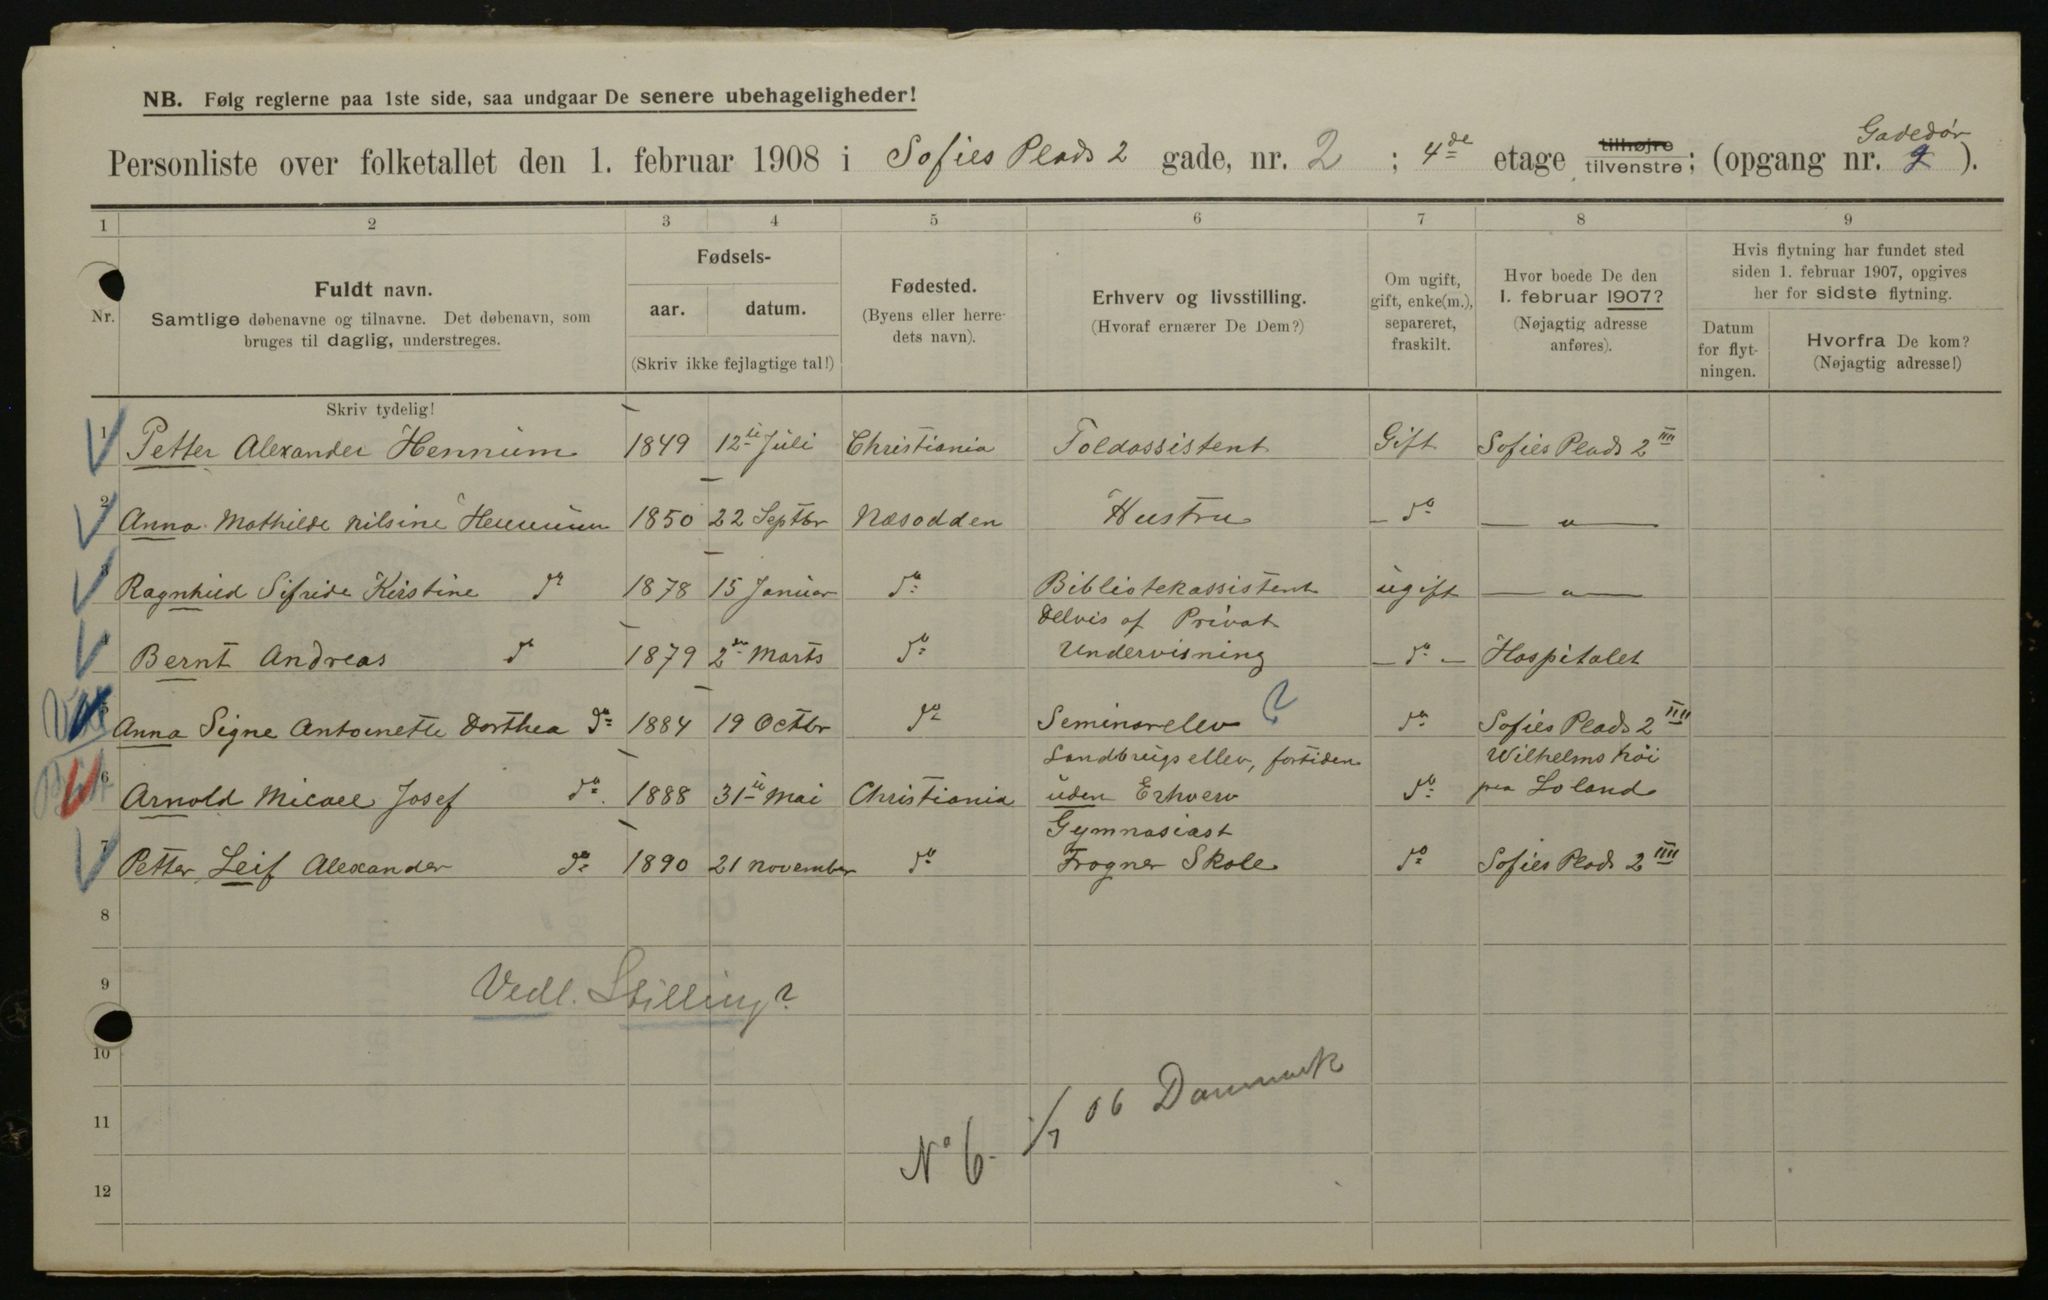 NB. Følg reglerne paa 1ste side, saa undgaar De senere ubehageligheder!
Personliste over folketallet den 1. februar 1908 i Sofies Plads 2 gade, nr. 2 ; 4de etage tilhøjre tilvenstre; (opgang nr. Gadedør ).
1 2 3 4 5 6 7 8 9
Nr.
Fuldt navn.
Samtlige døbenavne og tilnavne. Det døbenavn, som
bruges til daglig, understreges.
Fødsels-
aar. datum.
(Skriv ikke fejlagtige tal!)
Fødested.
(Byens eller herre-
dets navn).
Erhverv og livsstilling.
(Hvoraf ernærer De Dem?)
Om ugift,
gift, enke(m.),
separeret,
fraskilt.
Hvor boede De den
1. februar 1907?
(Nøjagtig adresse
anføres).
Hvis flytning har fundet sted
siden 1. februar 1907, opgives
her for sidste flytning.
Datum
for flyt-
ningen.
Hvorfra De kom?
(Nøjagtig adresse!)
Skriv tydelig!
1 Petter Alexander Hennum 1849 12te Juli Christiania Toldassistent Gift Sofies Plads 2 IIII
2 Anna Mathilde Nilsine Hennum 1850 22 Septbr Næsodden Hustru — do — — " —
3 Ragnhild Sifride Kirstine do 1878 15 Januar do Bibliotekassistent ugift — " —
Delvis af Privat
4 Bernt Andreas do 1879 2den Marts do Undervisning — do — Hospitalet
5 Anna Signe Antoinette Dorthea do 1884 19 Octbr do Seminarelev ? do Sofies Plads 2 IIII
Landbrugs ellev, fortiden Wilhelmshöi
6 Arnold Micael Josef do 1888 31te Mai Christiania uden Erhverv do paa Loland
Gymnasiast
7 Petter Leif Alexander do 1890 21 November do Frogner Skole do Sofies Plads 2 IIII
8
9
Vedl. Stilling?
10
11
No 6. 1/7 06 Danmark
12